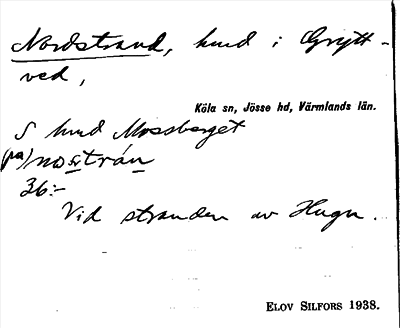 Nordstrand, hmd i Grytt-
ved,
Köla sn, Jösse hd, Värmlands län.
S hmd Mossberget
(på) nostrán
36:-
Vid stranden av Hugn.
ELOV SILFORS 1938.